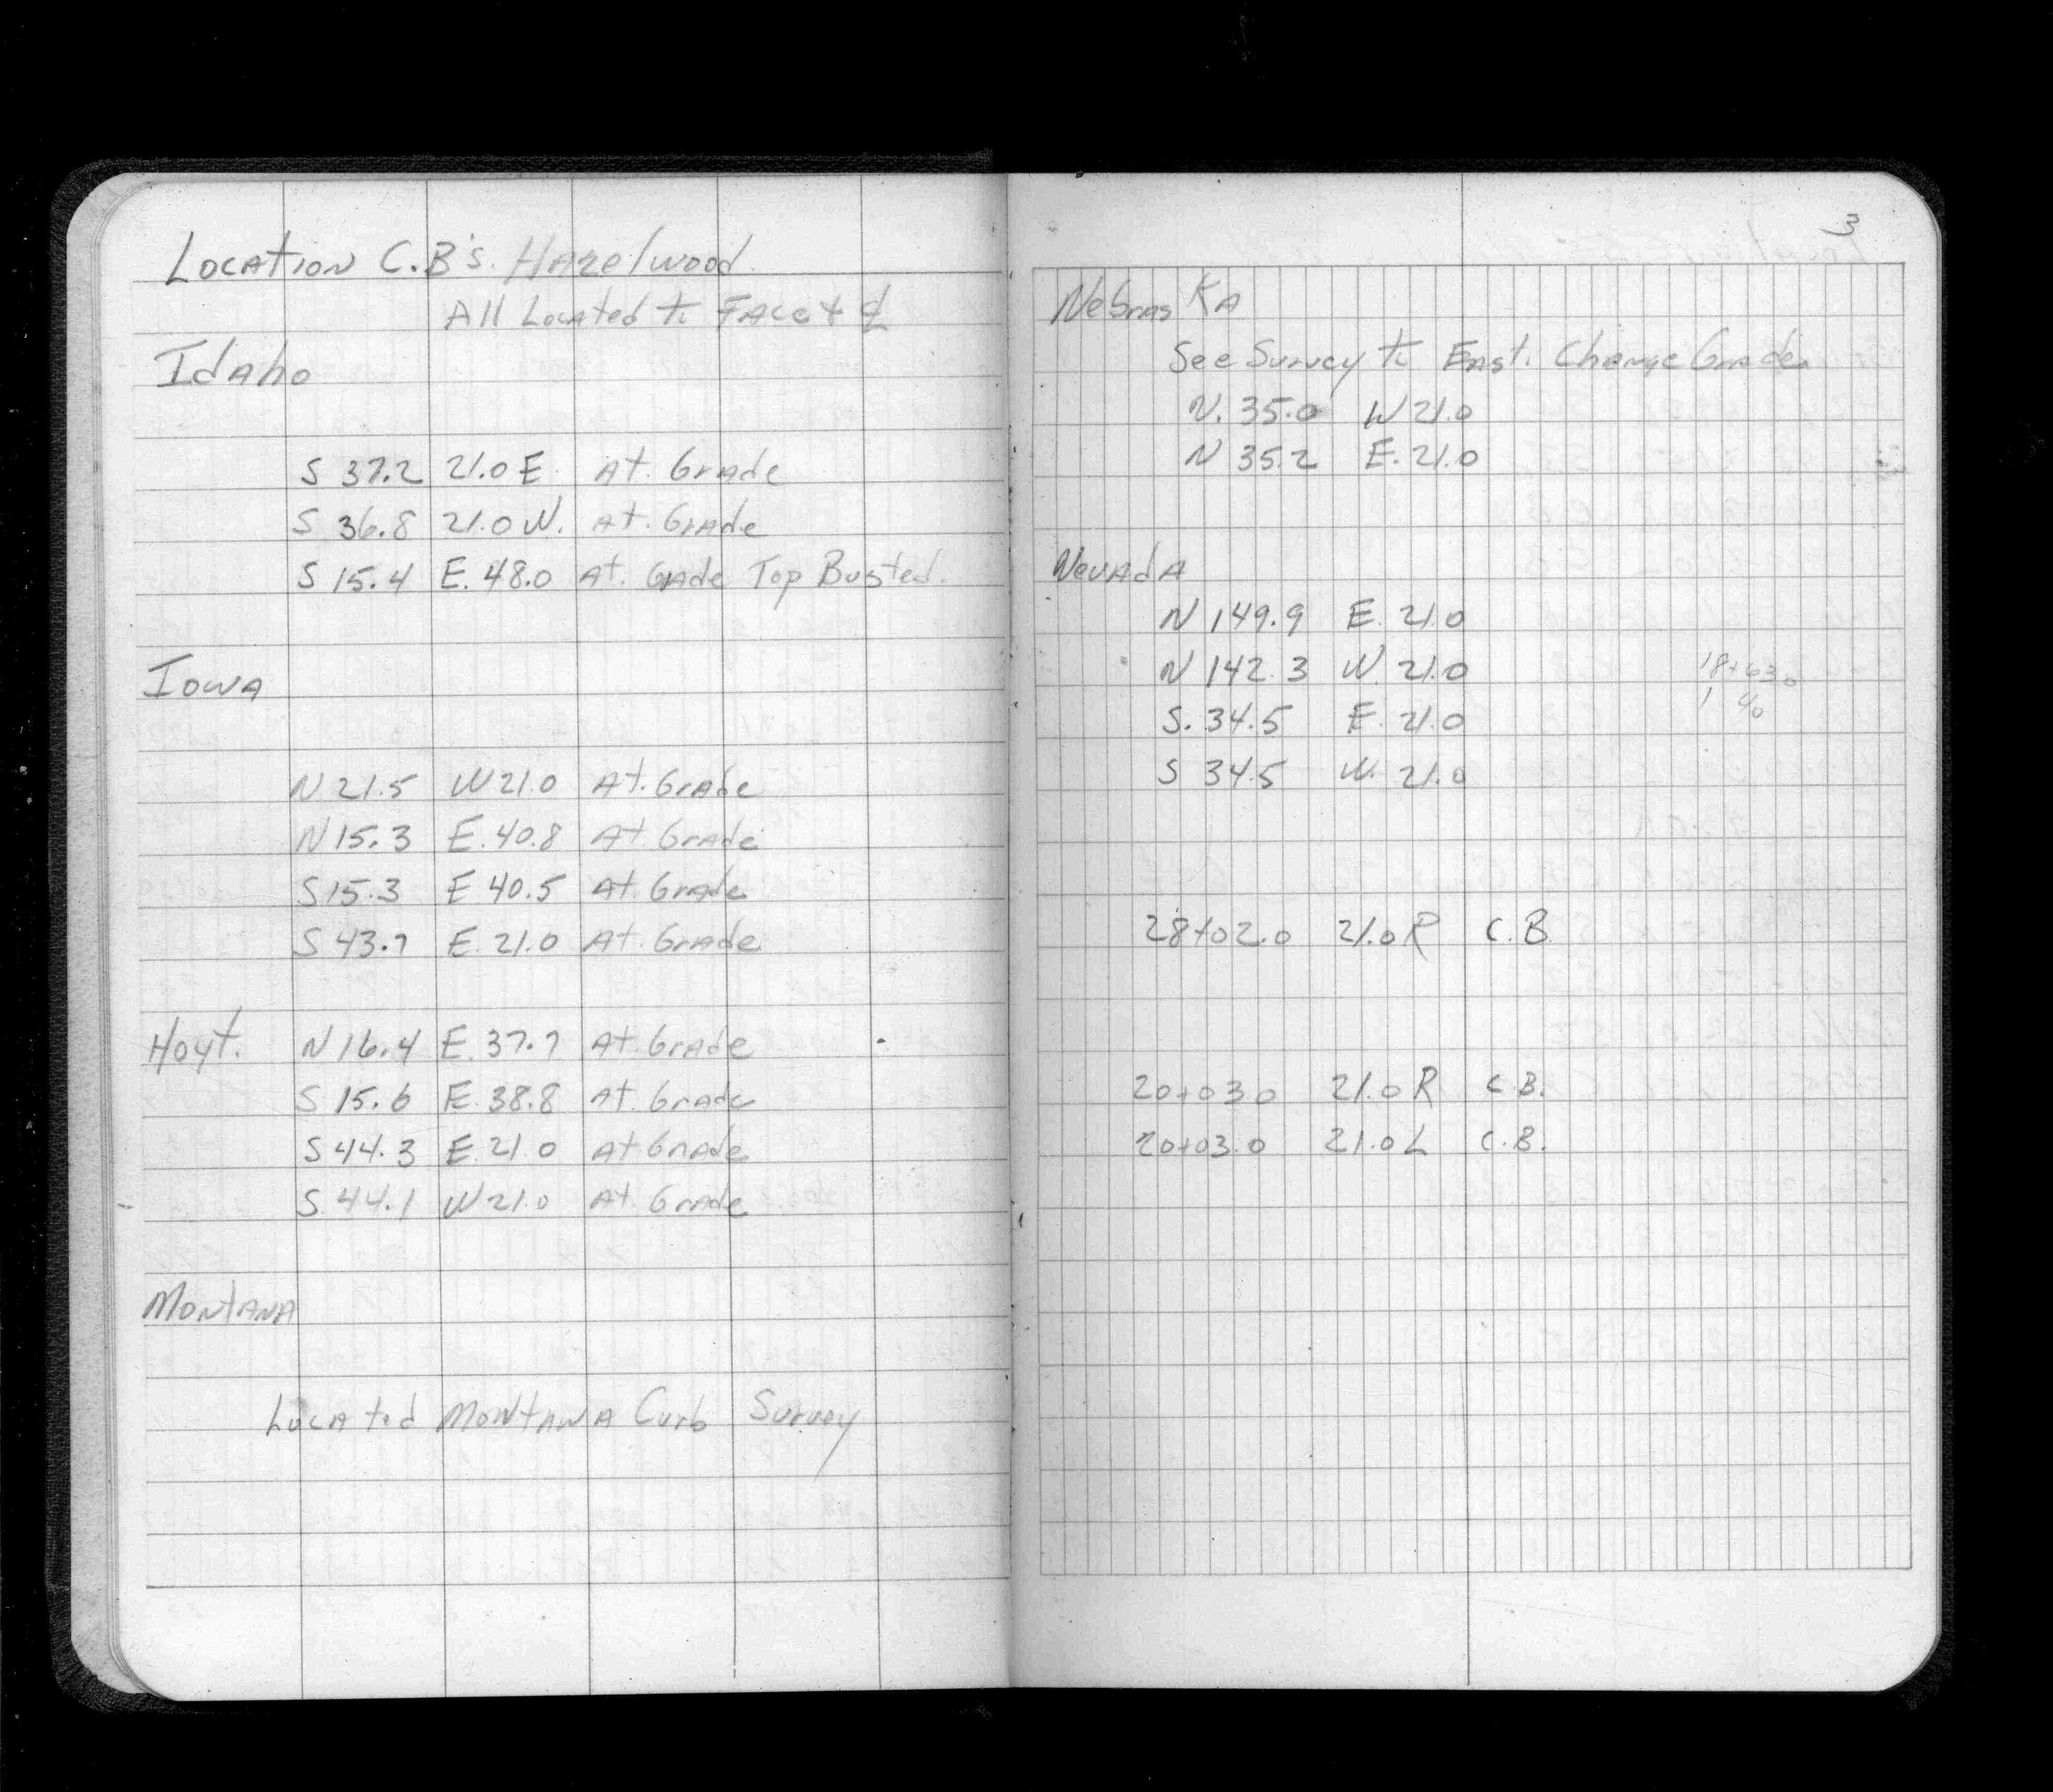 Location C.B's. Hazelwood.
All Located to Face & ℄
Idaho
S 37.2 21.0 E. At. Grade
S 36.8 21.0 W. At. Grade
S 15.4 E. 48.0 At. Grade Top Busted.
Iowa
N 21.5 W 21.0 At. Grade
N 15.3 E. 40.8 At. Grade
S 15.3 E 40.5 At. Grade
S 43.7 E. 21.0 At. Grade
Hoyt. N 16.4 E. 37.7 At. Grade
S 15.6 E. 38.8 At. Grade
S 44.3 E. 21.0 At. Grade
S. 44.1 W 21.0 At. Grade
Montana
Located Montana Curb Survey
3
Nebraska
See Survey to East. Change Grade.
N. 35.0 W 21.0
N 35.2 E. 21.0
Nevada
N 149.9 E. 21.0
N 142.3 W. 21.0
S. 34.5 E. 21.0
S 34.5 W. 21.0
28+02.0 21.0 R C.B.
20+03.0 21.0 R C.B.
20+03.0 21.0 L C.B.